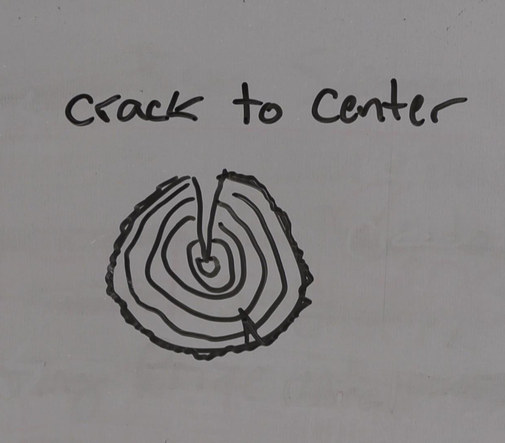 crack to center